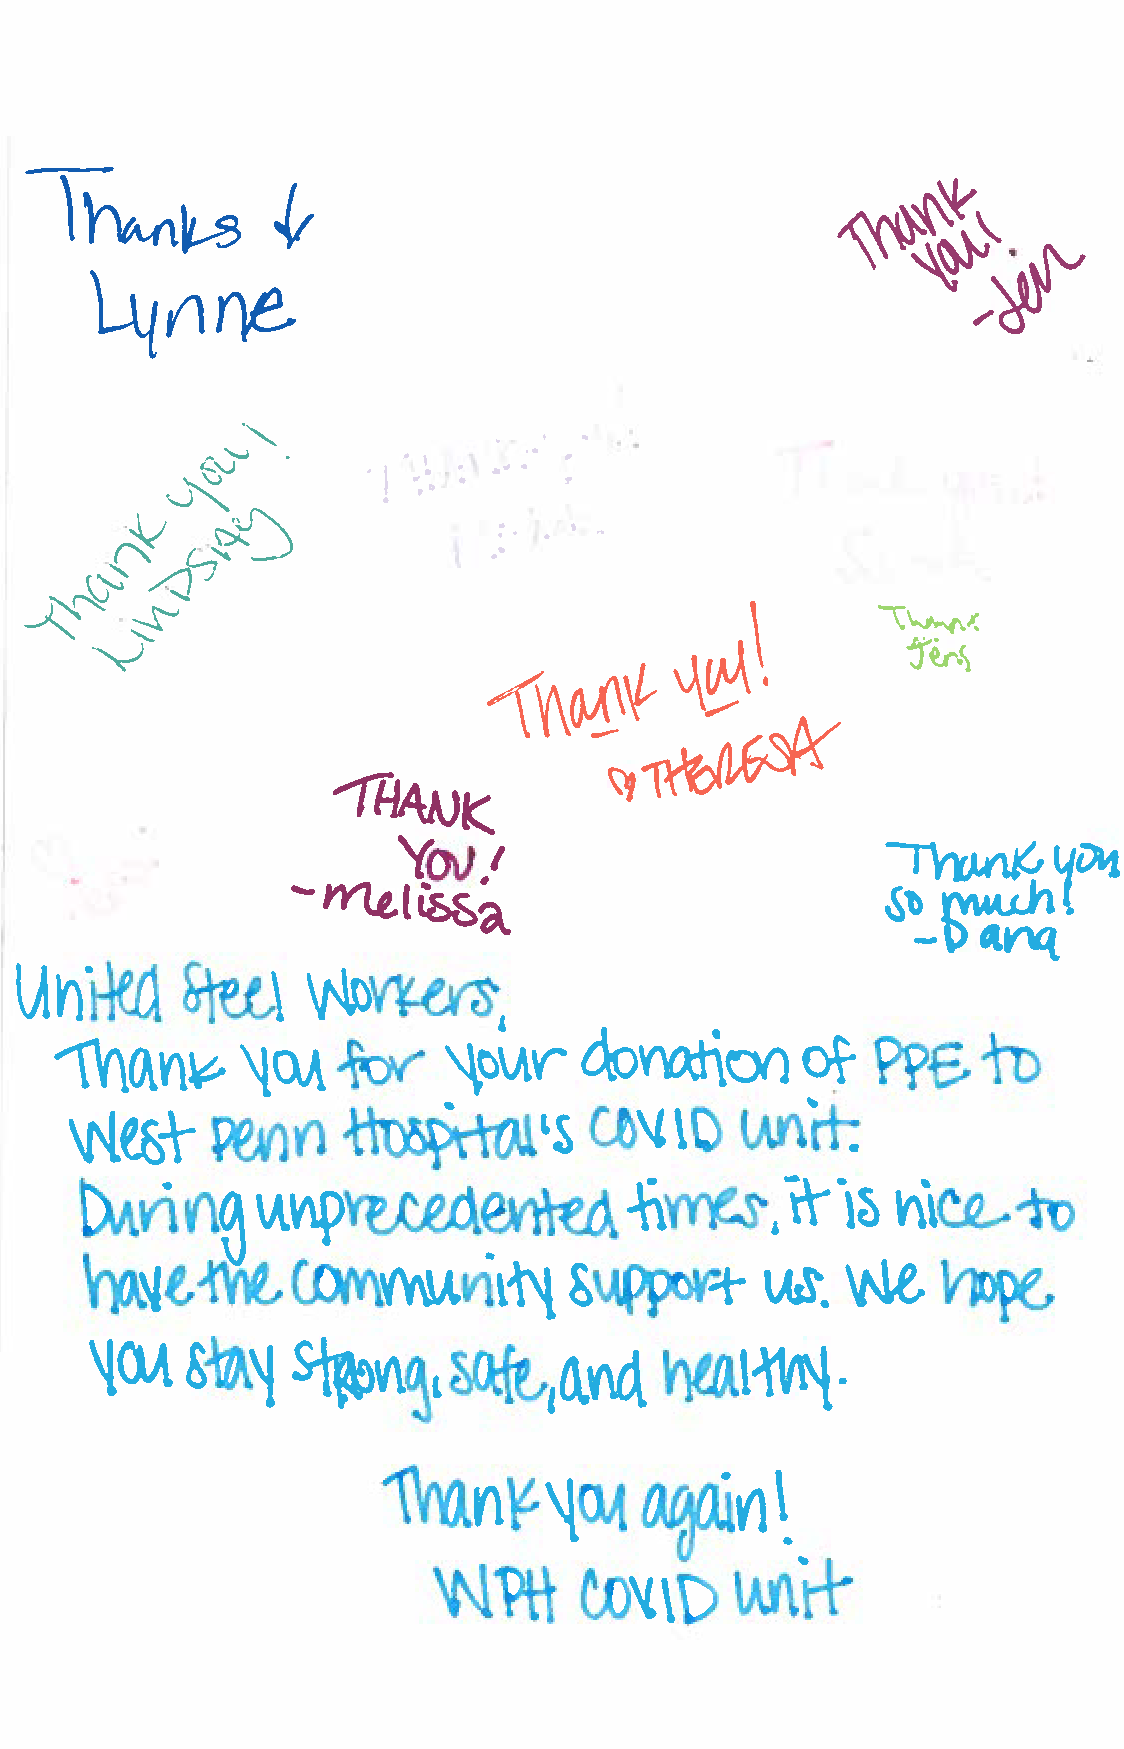 Thanks ↓
Lynne
Thank
you!
-Jen
Thank you!
LinDsay
Thank you!
♡ THERESA
THANK
YOU!
-Melissa
Thank you
so much!
-Dana
United Steel Workers,
Thank you for your donation of PPE to
West Penn Hospital's COVID unit.
During unprecedented times, it is nice to
have the community support us. We hope
you stay strong, safe, and healthy.
Thank you again!
WPH COVID unit